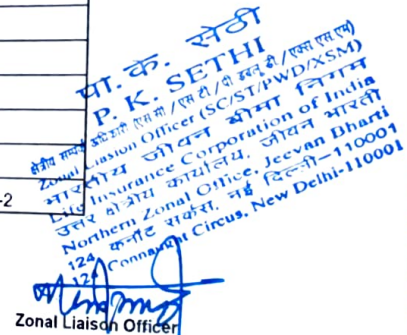 पी. के. सेठी
P. K. SETHI
क्षेत्रीय सम्पर्क अधिकारी (एस सी/एस टी/पी डब्लू डी/एक्स एस एम)
Zonal Liasion Officer (SC/ST/PWD/XSM)
भारतीय जीवन बीमा निगम
Life Insurance Corporation of India
उत्तर क्षेत्रीय कार्यालय, जीवन भारती
Northern Zonal Office, Jeevan Bharti
124, कनॉट सर्कस, नई दिल्ली-110001
124 Connaught Circus, New Delhi-110001
-2
Zonal Liaison Officer